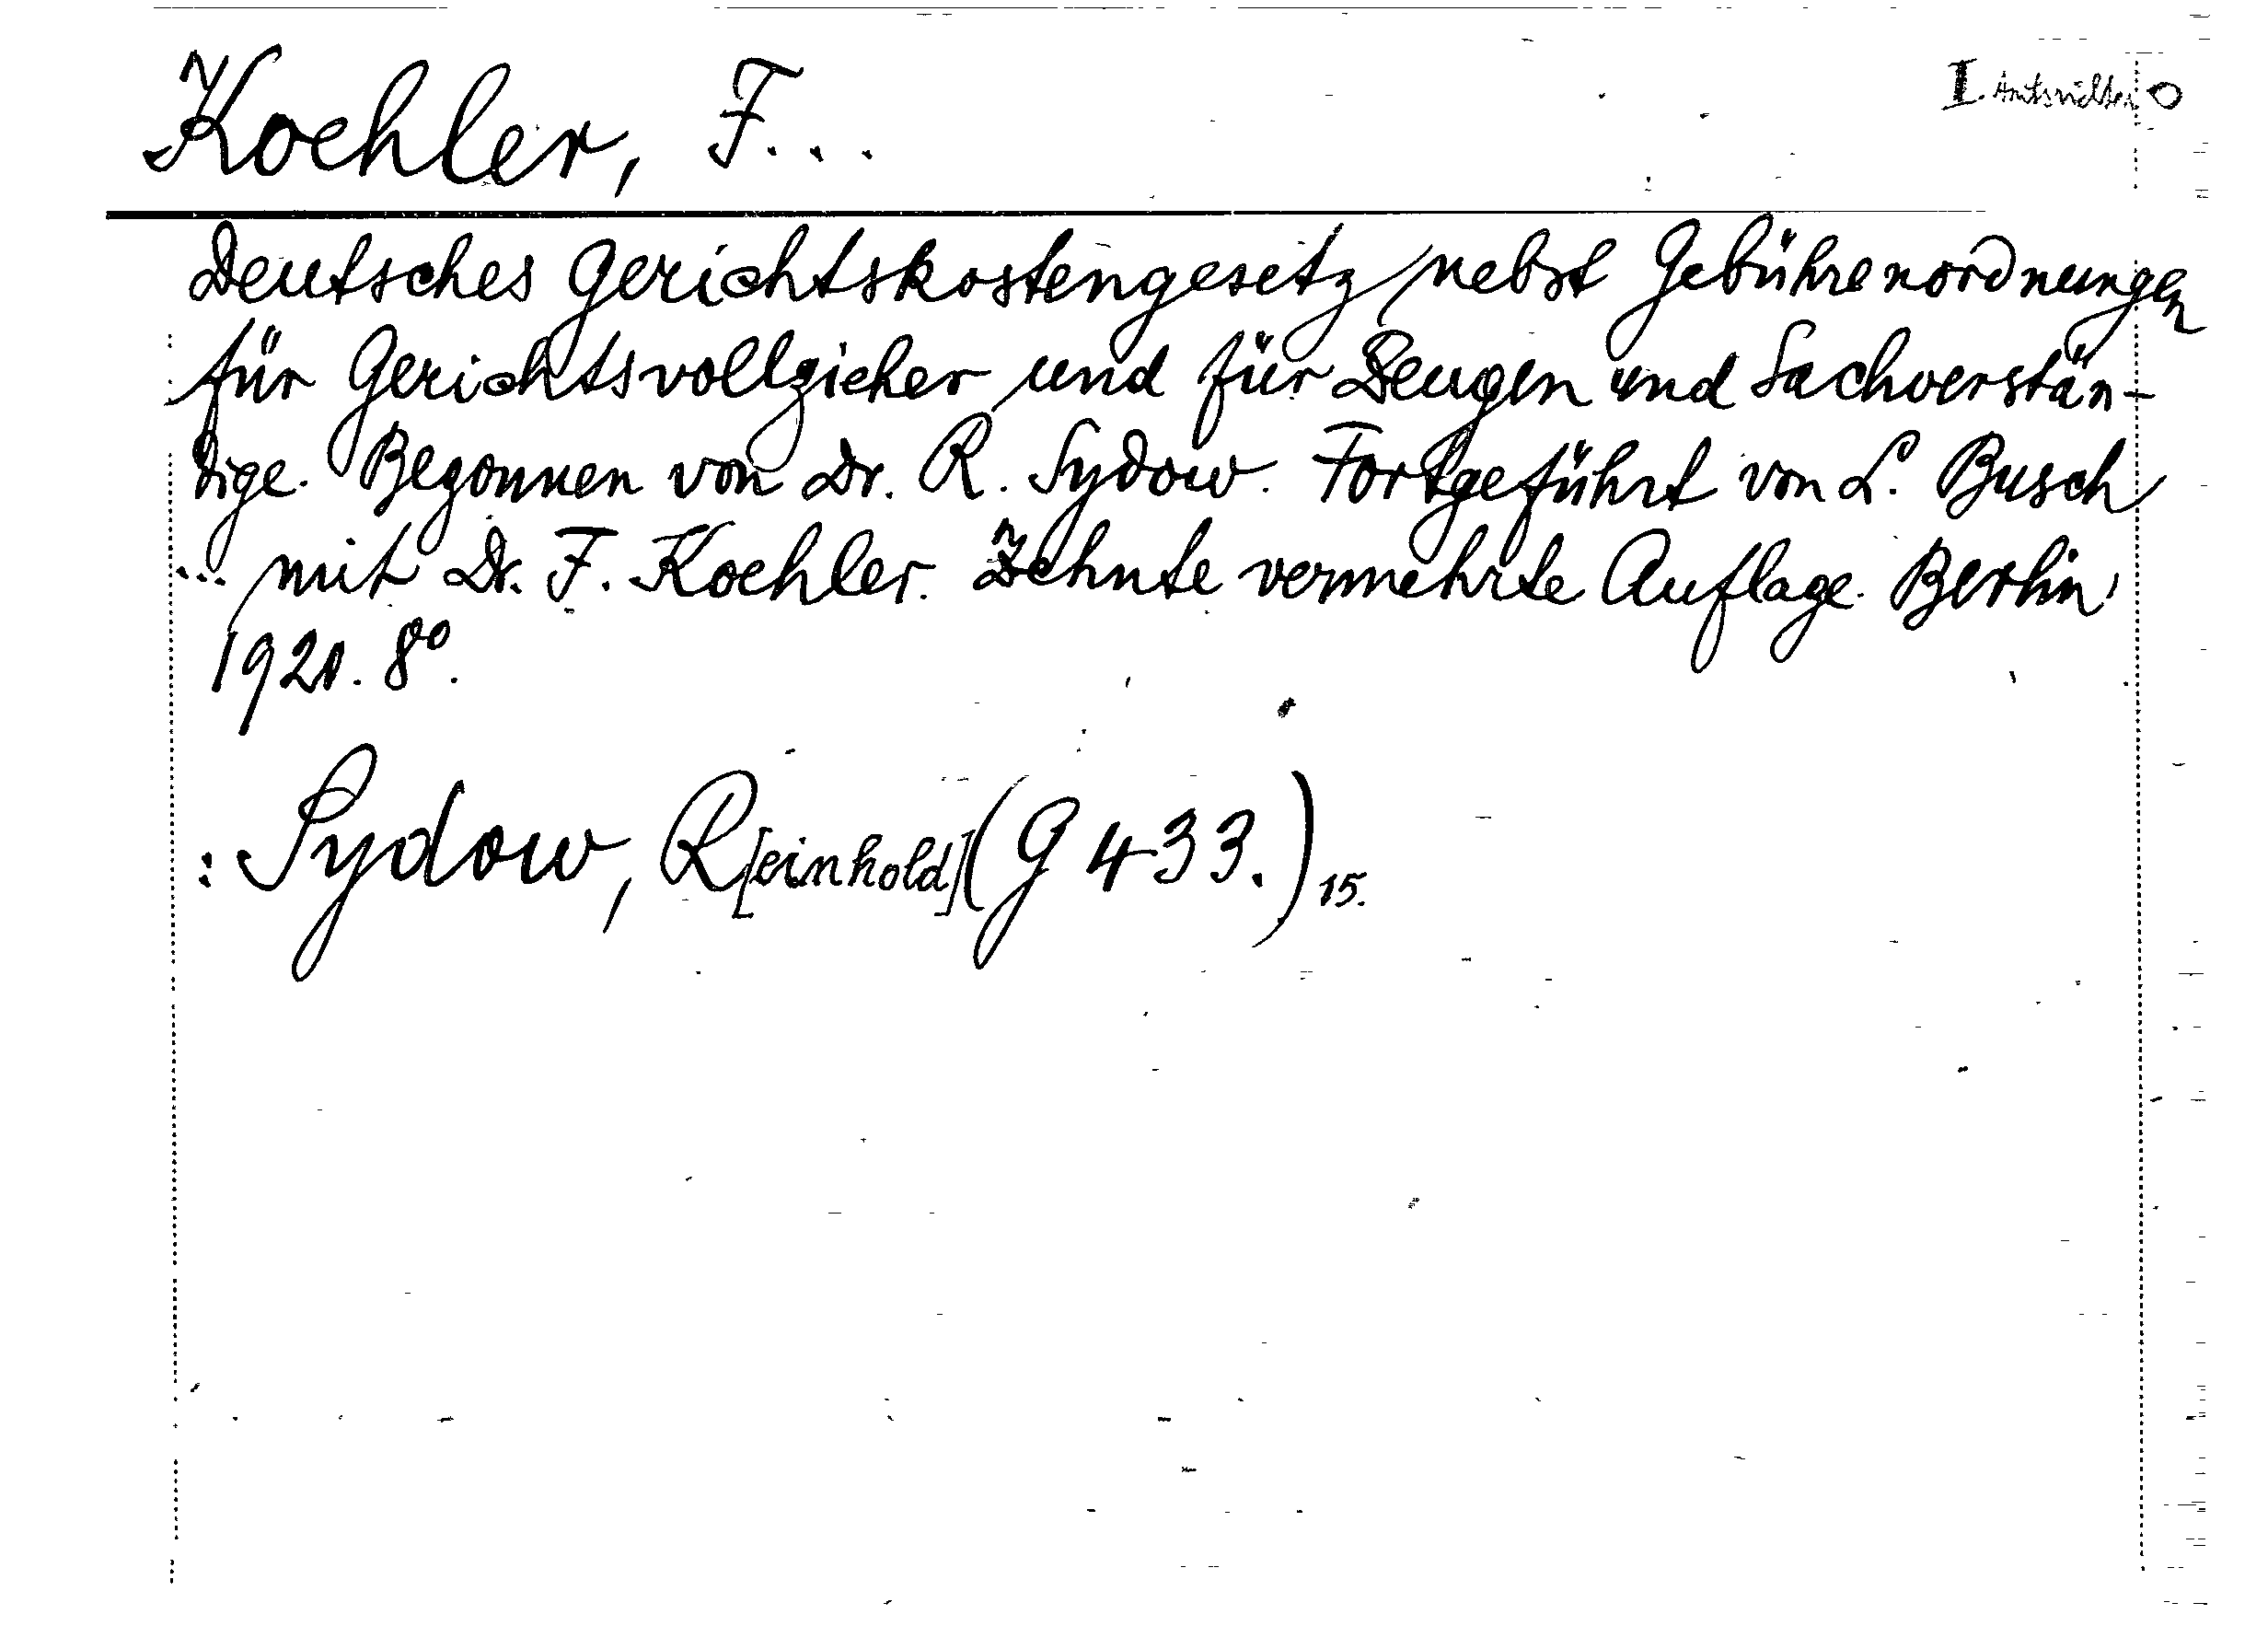 I. Amtsrichter O
Koehler, F...
Deutsches Gerichtskostengesetz nebst Gebührenordnungen
für Gerichtsvollzieher und für Zeugen und Sachverstän-
dige. Begonnen von Dr. R. Sydow. Fortgeführt von L. Busch
... mit Dr. F. Koehler. Zehnte vermehrte Auflage. Berlin,
8°.
: Sydow, R[einhold] (G 433.) 15.